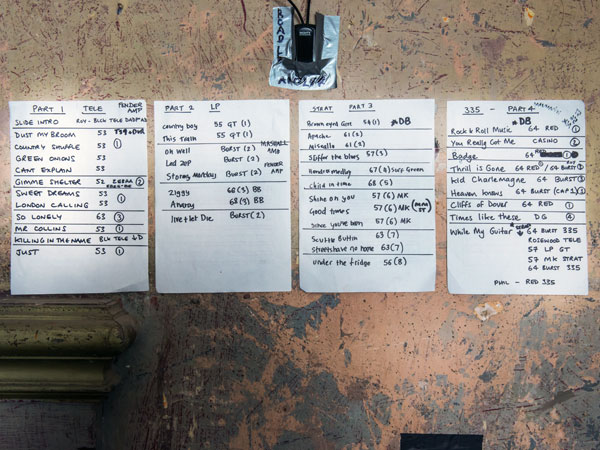 ROAD
PART 1 TELE FENDER AMP
SLIDE INTRO BLK TELE DADFAD
DUST MY BROOM 53 TS9
COUNTRY SHUFFLE 53 ①
GREEN ONIONS 53
CANT EXPLAIN 53
GIMME SHELTER 52 ②
SWEET DREAMS 53
LONDON CALLING 53 ①
SO LONELY 63 ③
MR COLLINS 53 ①
KILLING IN THE NAME BLK TELE ↓D
JUST 53 ①
PART 2 LP
country boy 55 GT (1)
This Tooth 55 GT (1)
Oh well BURST (2) MARSHALL AMP
Led Zep BURST (2) FENDER AMP
Stormy Monday BURST (2)
Ziggy 68 (3) BB
Anyway 68 (3) BB
live + let Die BURST (2)
STRAT PART 3
Brown eyed Girl 54 (1) *DB
Apache 61 (2)
Misirlou 61 (2)
Suffer the blues 57 (3)
Hendrix medley 67 (4) Surf Green
Child in time 68 (5)
Shine on you 57 (6) MK
Good times 57 (6) MK
Since you've been 57 (6) MK
Scuttle Buttin 63 (7)
streets have no name 63 (7)
under the fridge 56 (8)
335 - PART 4
*DB
Rock & Roll Music 64 RED ①
You Really Got Me CASINO ②
Bodge 64 RED ①
Thrill is Gone 64 RED / 64 BURST
kid Charlemagne 64 BURST
Heaven knows 64 BURST (CAP 2)
Cliffs of Dover 64 RED ①
Times like these DG ④
While My Guitar 64 BURST 335
ROSEWOOD TELE
57 LP GT
57 MK STRAT
64 BURST 335
PHIL - RED 335